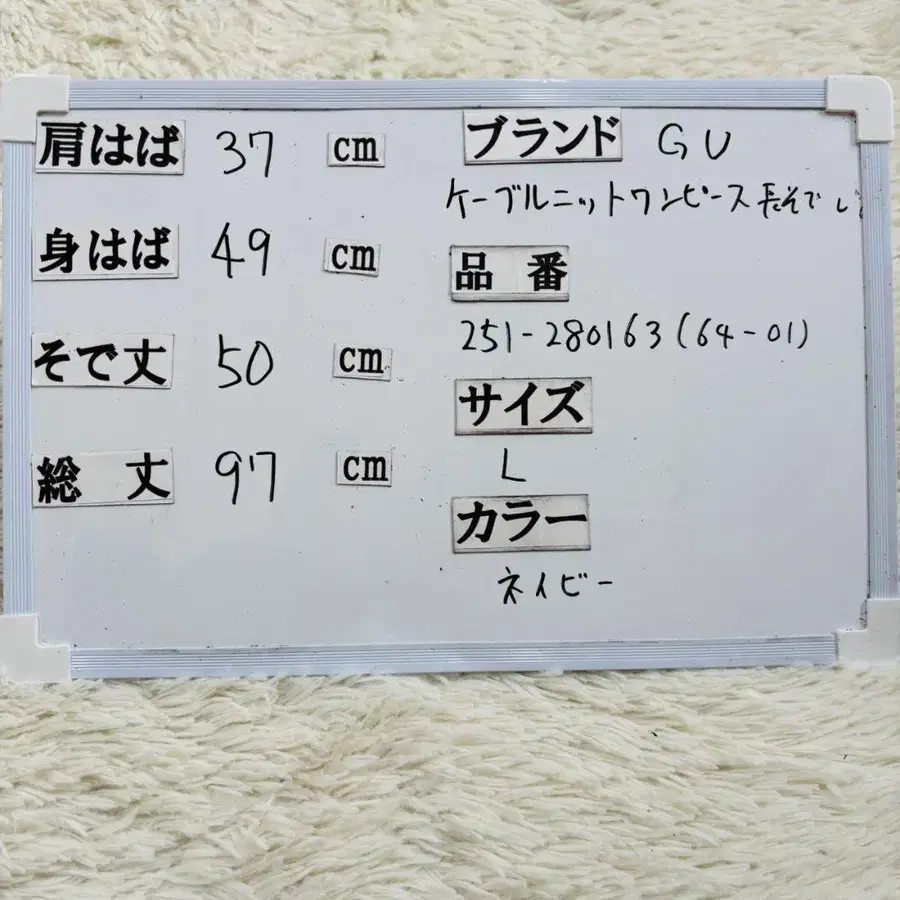 肩はば 37 cm
身はば 49 cm
そで丈 50 cm
総丈 97 cm
ブランド GU
ケーブルニットワンピース長そで
品番
251-280163(64-01)
サイズ
L
カラー
ネイビー